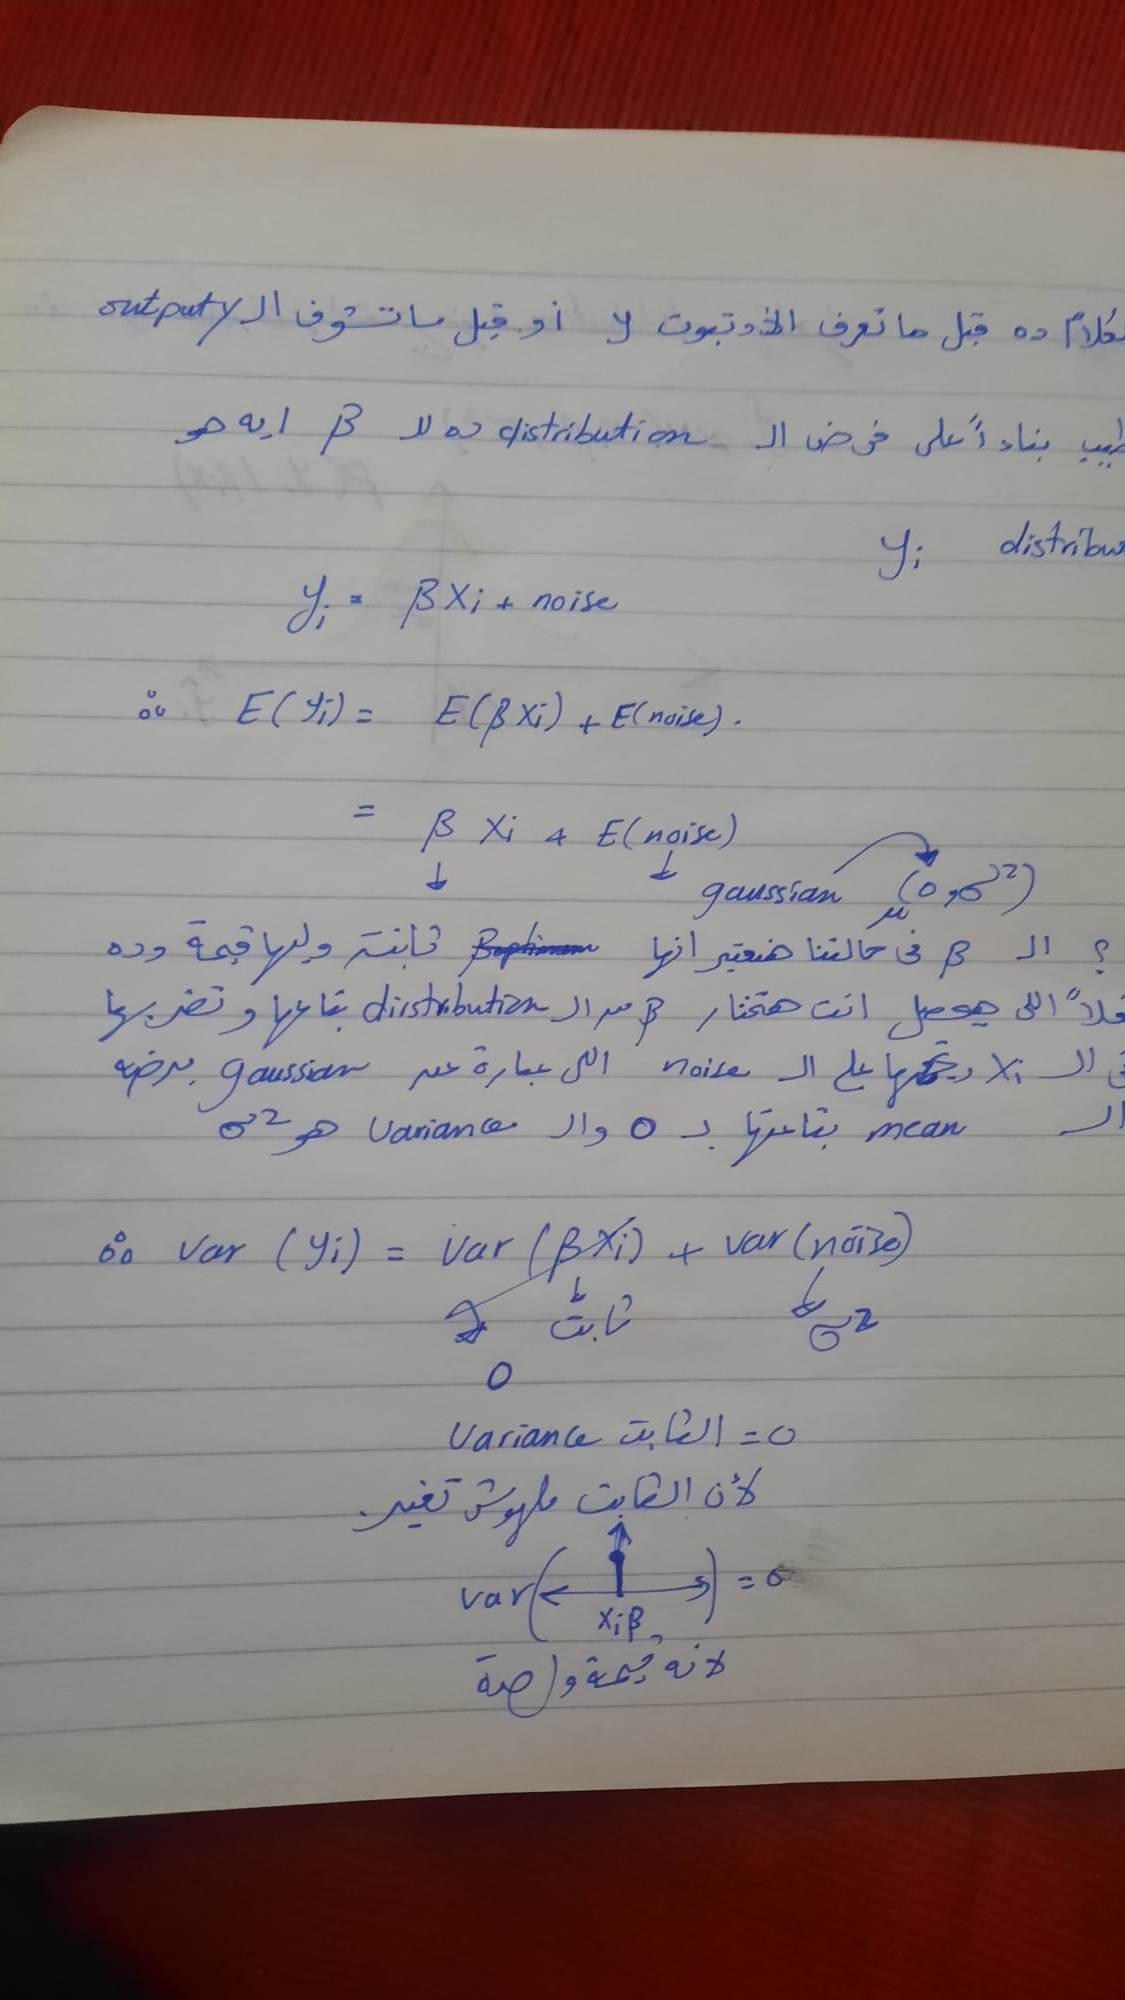 كلام ده قبل ما تعرف الاوتبوت y أو قبل ما تشوف الـ output y
طيب بناءاً على فرض الـ distribution ده لا β ايه هو
yi distribu
yi = βXi + noise
∴ E(yi) = E(βXi) + E(noise).
= β Xi + E(noise)
gaussian (0, σ²)
μ
؟ الـ β فى حالتنا هنعتبر انها ثابتة وليها قيمة وده
اللى هيحصل انت هتختار β من الـ diistribution بتاعها وتضربها
فى الـ Xi على الـ noise اللى عبارة عن gaussian برضه
الـ mean بتاعتها بـ 0 والـ variance هو σ²
∴ var (yi) = var (βXi) + var (noise)
ثابت σ²
0
variance الثابت = 0
لأن الثابت ملهوش تغيير.
var( ) = 0
Xiβ
لانه قيمة واحدة